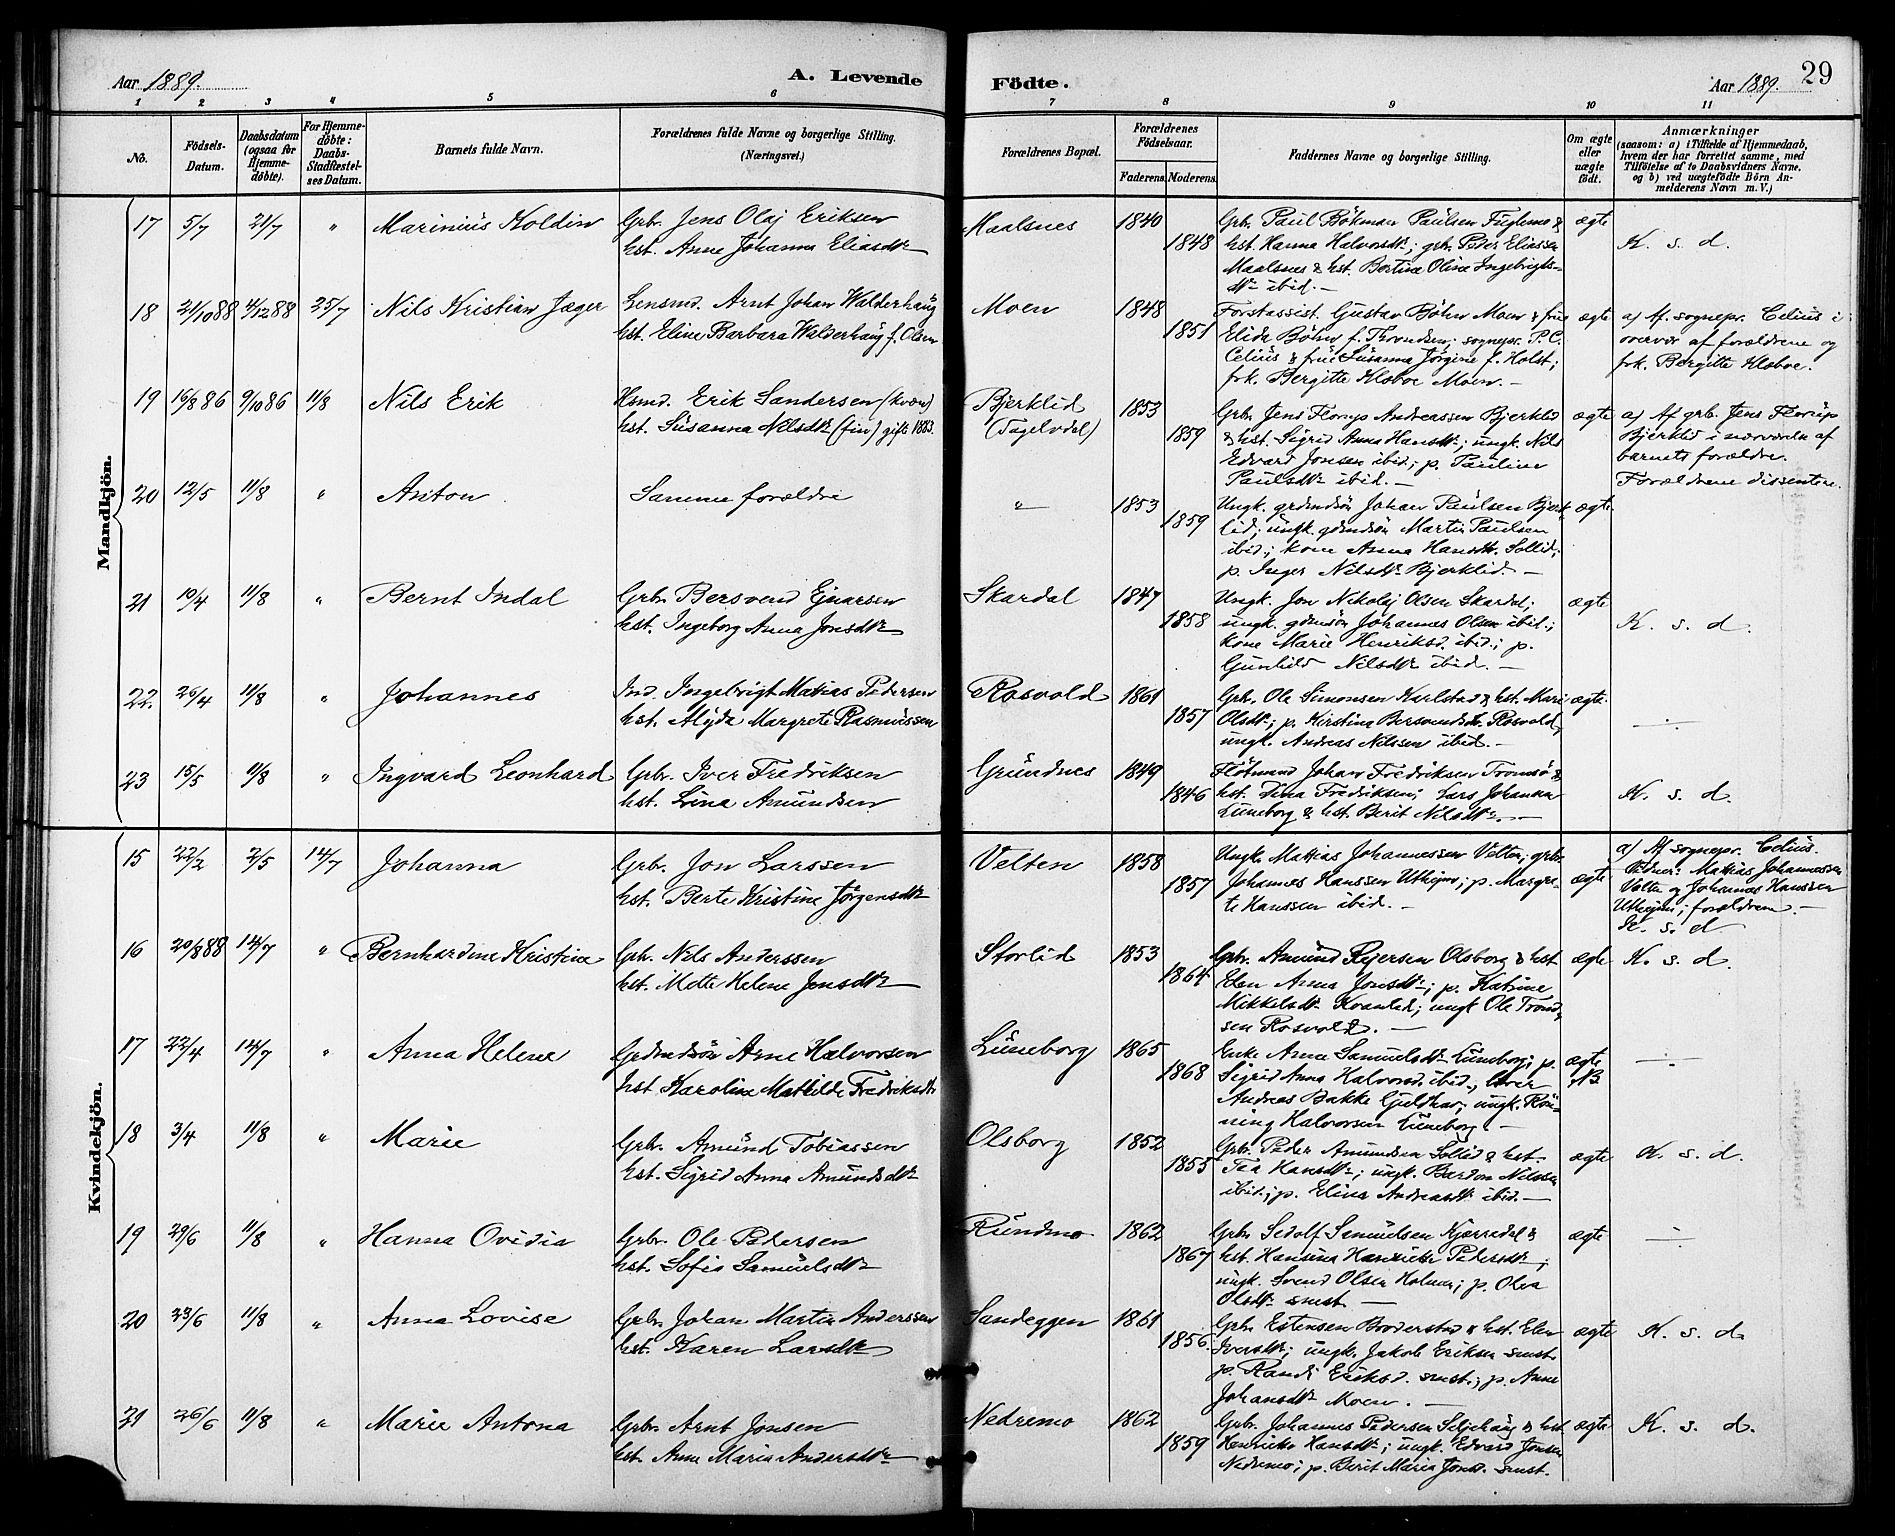 Aar 1889.
A. Levende
Fødte.
Aar 1889.
29
1 2 3 4 5 6 7 8 9 10 11
No.
Fødsels-
Datum.
Daabsdatum
(ogsaa for
Hjemme-
døbte).
For Hjemme-
døbte:
Daabs-
Stadfæstel-
ses Datum.
Barnets fulde Navn.
Forældrenes fulde Navne og borgerlige Stilling.
(Næringsvei.)
Forældrenes Bopæl.
Forældrenes
Fødselsaar.
Faderens.
Moderens.
Faddernes Navne og borgerlige Stilling.
Om ægte
eller
uægte
født.
Anmærkninger
(saasom: a) i Tilfælde af Hjemmedaab,
hvem der har forrettet samme, med
Tilføielse af to Daabsvidners Navne,
og b) ved uægtefødte Børn An-
melderens Navn m. V.)
Mandkjøn.
17 5/7 21/7 " Marinius Koldin Grb. Jens Olaj Eriksen
hst. Anne Johanna Eliasdtr
Maalsnes 1840 1848
Grb. Paul Bøkman Paulsen Fuglemo &
hst. Hanna Halvorsdtr; grb. Peder Eliassen
Maalsnes & hst. Bortine Oline Ingebrigts-
dtr ibid.—
ægte K. s. d.
18 21/10 88 4/12 88 25/7 Nils Kristian Jæger Lensmd. Arnt Johan Walderhaug
hst. Eline Barbara Walderhaug f. Olsen
Moen 1848 1851
Forstassist. Gustav Bøhn Moen & frue
Elida Bøhn f. Throndsen; sognepr. P. C.
Celius & frue Susanna Jørgine f. Holst;
frk. Bergitte Klæboe Moen.—
ægte
a) Af sognepr. Celius i
overvær af forældrene og
frk. Bergitte Klæboe.
19 16/8 86 9/10 86 11/8 Nils Erik Hsmd. Erik Sandersen (kvæn)
hst. Susanna Nilsdtr (fin) gift 1883.
Bjerklid
(Tagelvdal)
1853 1859
Grb. Jens Florup Andreassen Bjerklid
& hst. Sigrid Anna Hansdtr; ungk. Nils
Edvard Jonsen ibid.; p. Pauline
Paulsdtr ibid.—
ægte
a) Af grb. Jens Florup
Bjerklid i nærværelse af
barnets forældre.
Forældrene dissentere.
20 12/5 11/8 " Anton Samme forældre
" 1853 1859
Ungk. grdmdsøn Johan Paulsen Bjerk-
lid; ungk. gdmdsøn Martin Paulsen
ibid.; kone Anna Hansdtr. Sollid;
p. Inger Nilsdtr Bjerklid.—
ægte.
21 10/4 11/8 " Bernt Indal Grb. Bersvend Ejnarsen
hst. Ingeborg Anna Jonsdtr
Skardal 1847 1858
Ungk. Jon Nikolaj Olsen Skardal;
ungk. gdmdsøn Johannes Olsen ibid.;
kone Marie Henriksd. ibid.; p.
Gunhild Nilsdtr ibid.—
ægte K. s. d.
22. 26/4 11/8 " Johannes Ind. Ingebrigt Matias Pedersen
hst. Alyda Margrete Rasmussen
Rosvold 1861 1857
Grb. Ole Simonsen Karlstad & hst. Mari
Olsdtr; p. Kirstina Bersvendsdtr. Rosvold,
ungk. Andreas Nilssen ibid.—
ægte.
23 15/5 11/8 " Ingvard Leonhard Grb. Iver Fredriksen
hst. Lina Amundsen
Grundnes 1849 1846
Fløtmand Johan Fredriksen Tromsø &
hst. Dina Fredriksen; Lars Johannes
Luneborg & hst. Berit Nilsdtr.—
K. s. d.
Kvindekjøn.
15 22/2 2/5 14/7 Johanna Grb. Jon Larssen
hst. Berte Kristine Jørgensdtr
Velten 1858 1857
Ungk. Mattias Johannessen Velten; grb.
Johannes Hanssen Utheim; p. Margre-
te Hanssen ibid.—
ægte
a) Af sognepr. Celius.
Vidner: Mattias Johannessen
Velten og Johannes Hanssen
Utheim; forældrene.—
K. s. d
16 20/8 88 14/7 " Bernhardine Kristine Grb. Nils Anderssen
hst. Mette Helene Jensdtr
Storlid 1853 1864
Grb. Amund Rejersen Olsborg & hst
Elen Anna Jonsdtr; p. Katrine
Mikkelsdtr. Kvanlid; ungk Ole Trond-
sen Rosvold.—
ægte K. s. d.
17 22/4 14/7 " Anna Helene Grdmdsøn Arne Halvorsen
hst Karoline Mathilde Fredriksdtr
Luneborg 1865 1868
Enke Anne Samuelsdtr Luneborg; p.
Sigrid Anna Halvorsd. ibid.;
Andreas Bakke Guldhav; ungk. Røn-
ning Halvorsen Luneborg.—
ægte NB
18 3/4 11/8 " Marie Grb. Amund Tobiassen
hst. Sigrid Anna Amundsdtr
Olsborg 1852 1855
Grb. Peder Amundsen Sollid & hst
Tea Hansdtr; ungk. Bardon Nilssen
ibid.; p. Elina Andreasdtr ibid.—
ægte K. s. d.
19 29/6 11/8 " Hanna Ovidia Grb. Ole Pedersen
hst. Sofie Samuelsdtr
Rundmo 1862 1867
Grb. Sedolf Samuelsen Kjærredal &
hst. Hansina Henrikke Pedersdtr;
ungk. Svend Olsen Holmen; p. Olea
Olsdtr smst—
ægte
20 23/6 11/8 " Anna Lovise Grb. Johan Martin Anderssen
hst. Karen Larsdtr
Sandeggen 1861 1856.
Grb. Estensen Broderstad & hst. Elen
Iversdtr; ungk. Jakob Eriksen smst.
p. Randi Eriksd. smst.; p. Anne
Johansdtr Moen.—
ægte K. s. d.
21 26/6 11/8 " Marie Antona Grb. Arnt Jonsen
hst. Anne Maria Andersdtr
Nedremo 1862 1859
Grb. Johannes Pedersen Seljehaug & hst
Henrikke Hansdtr; ungk. Edvard Jonsen
Nedremo; p. Berit Maria Jonsd. smst.
ægte K. s. d.